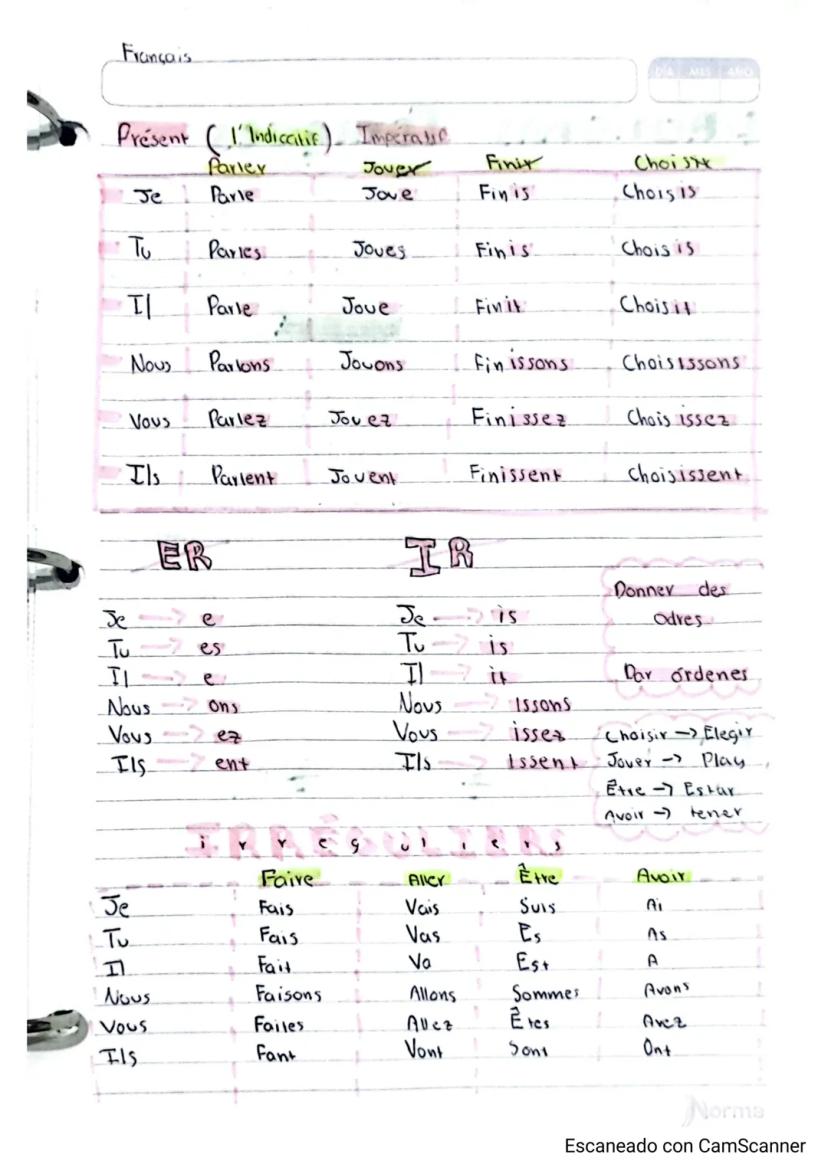 Français
DÍA MES AÑO
Présent (l'Indicatif) Impératif
Parler Jouer Finir Choisir
Je Parle Joue Finis Choisis
Tu Parles Joues Finis Choisis
Il Parle Joue Finit Choisit
Nous Parlons Jouons Finissons Choisissons
Vous Parlez Jouez Finissez Choisissez
Ils Parlent Jouent Finissent Choisissent
ER IR
Donner des
odres
Dar órdenes
Je → e Je → is
Tu → es Tu → is
Il → e Il → it
Nous → ons Nous → issons
Vous → ez Vous → issez
Ils → ent Ils → issent
Choisir → Elegir
Jouer → Play
Être → Estar
Avoir → tener
IRRÉGULIERS
irreguliers
Faire Aller Être Avoir
Je Fais Vais Suis Ai
Tu Fais Vas Es As
Il Fait Va Est A
Nous Faisons Allons Sommes Avons
Vous Faites Allez Êtes Avez
Ils Font Vont Sont Ont
Norma
Escaneado con CamScanner